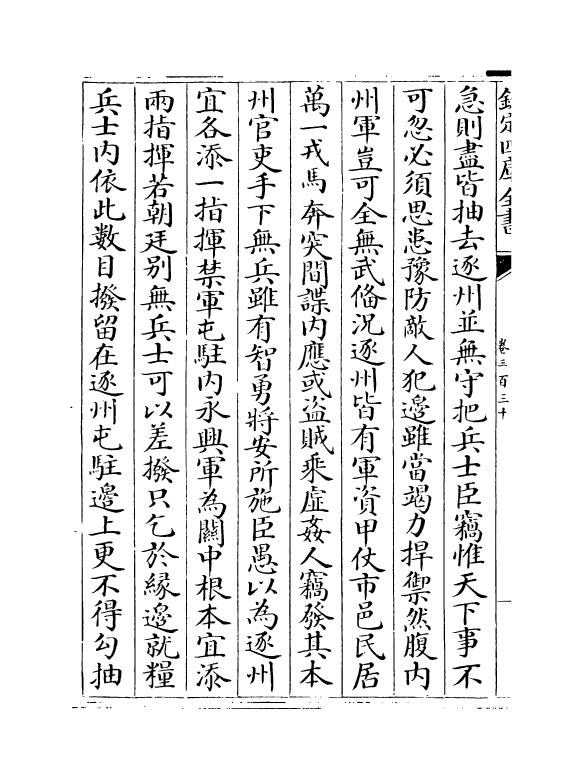 欽定四庫全書
卷三百三十
急則盡皆抽去逐州並無守把兵士臣竊惟天下事不
可忽必須思患豫防敵人犯邊雖當竭力捍禦然腹内
州軍豈可全無武備況逐州皆有軍資甲仗市邑民居
萬一戎馬奔突間諜内應或盜賊乘虛姦人竊發其本
州官吏手下無兵雖有智勇將安所施臣愚以為逐州
宜各添一指揮禁軍屯駐内永興軍為關中根本宜添
兩指揮若朝廷别無兵士可以差撥只乞於緣邊就糧
兵士内依此數目撥留在逐州屯駐邊上更不得勾抽